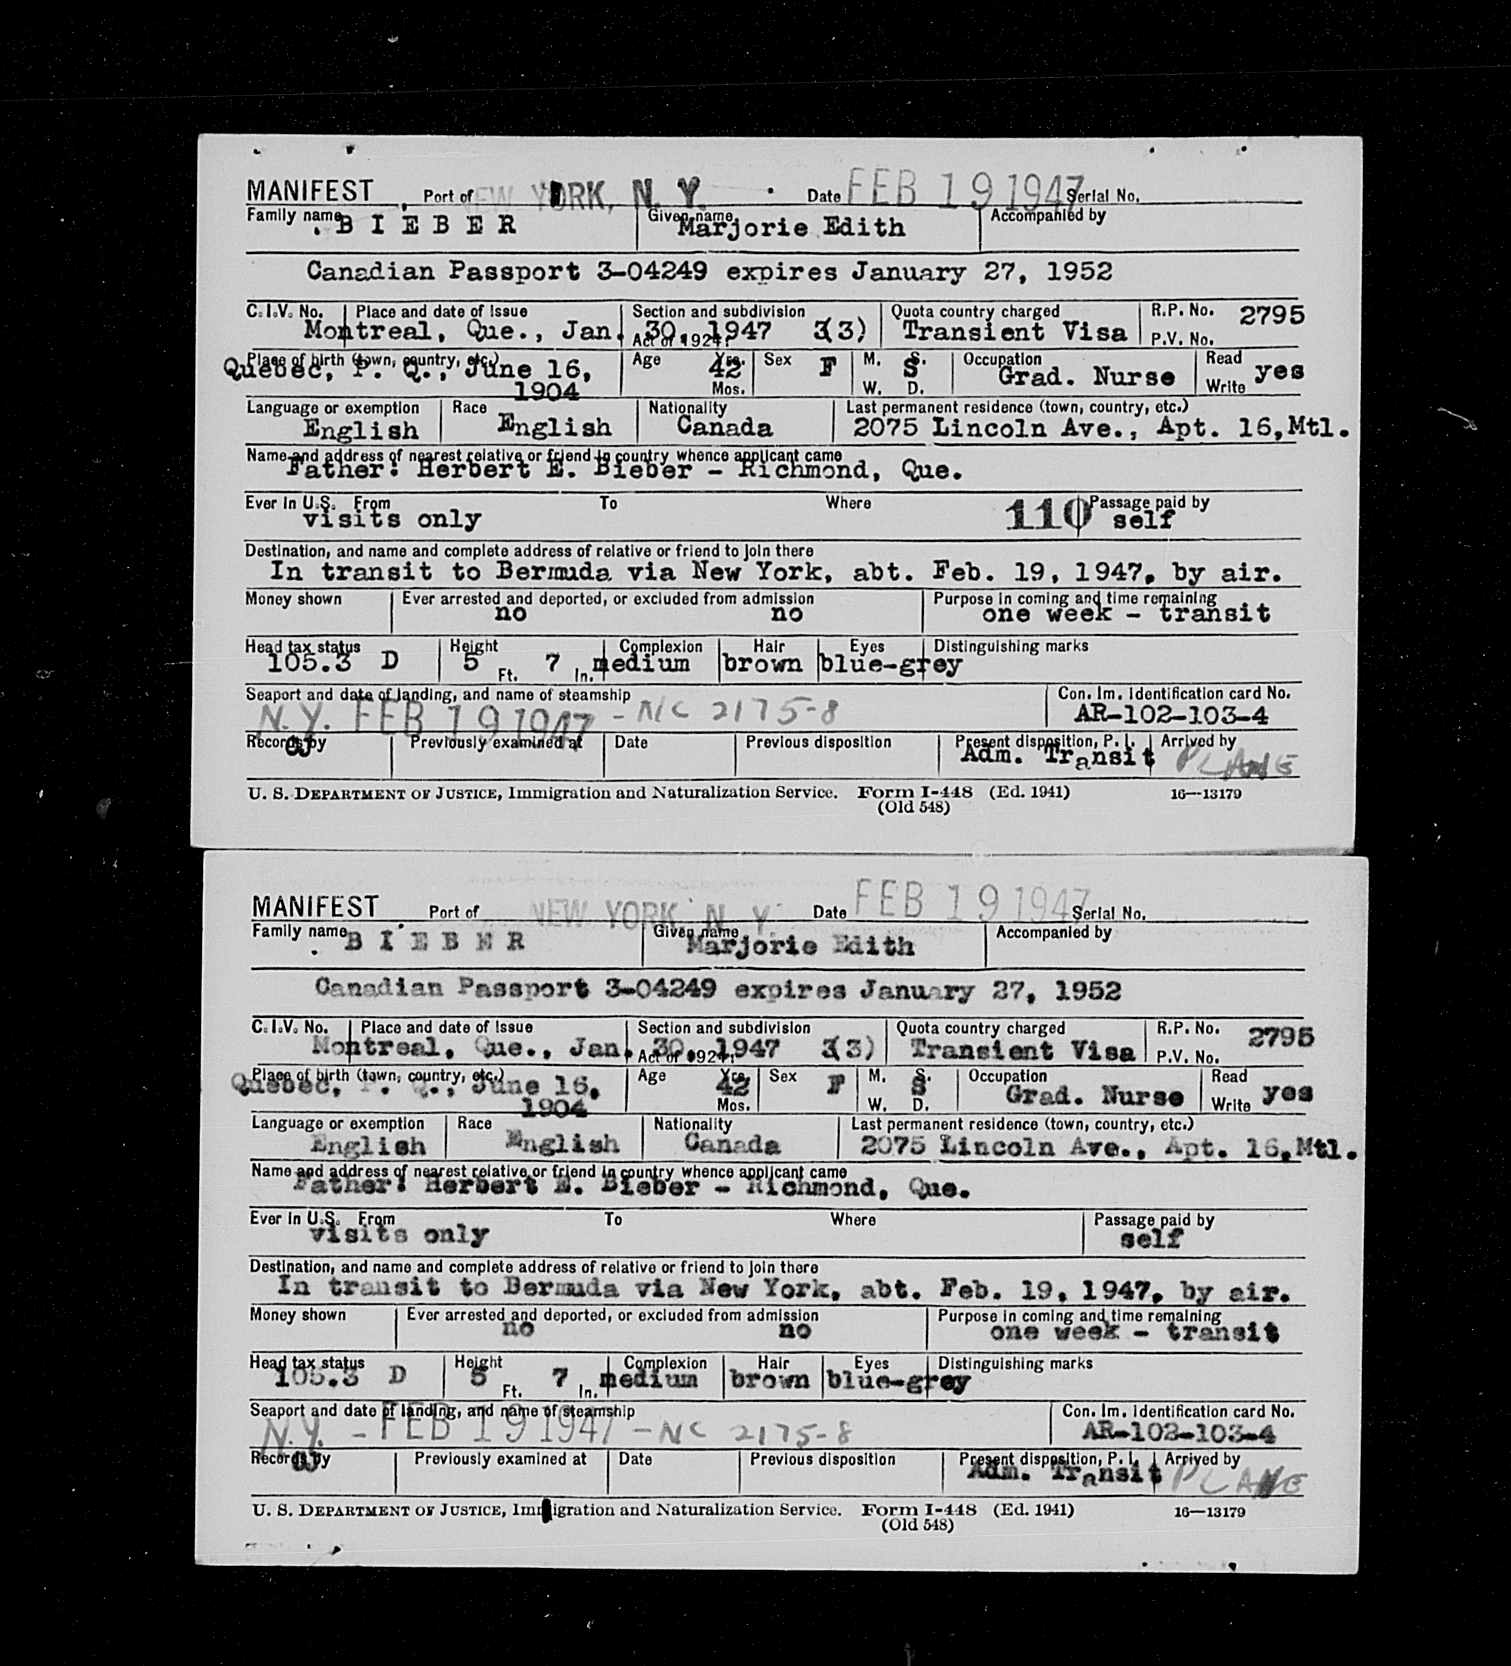 MANIFEST Port of NEW YORK, N. Y. Date FEB 19 1947 Serial No.
Family name BIEBER Given name Marjorie Edith Accompanied by
Canadian Passport 3-04249 expires January 27, 1952
C.I.V. No. Place and date of issue Section and subdivision Quota country charged R.P. No. 2795
Montreal, Que., Jan. 30, 1947 Act of 1924: 3(3) Transient Visa P.V. No.
Place of birth (town, country, etc.) Age Yrs. Sex M. S. Occupation Read
Quebec, P. Q., June 16, 42 F S Grad. Nurse yes
1904 Mos. W. D. Write
Language or exemption Race Nationality Last permanent residence (town, country, etc.)
English English Canada 2075 Lincoln Ave., Apt. 16, Mtl.
Name and address of nearest relative or friend in country whence applicant came
Father: Herbert E. Bieber - Richmond, Que.
Ever in U.S. From To Where 110 Passage paid by
visits only self
Destination, and name and complete address of relative or friend to join there
In transit to Bermuda via New York, abt. Feb. 19, 1947, by air.
Money shown Ever arrested and deported, or excluded from admission Purpose in coming and time remaining
no no one week - transit
Head tax status Height Complexion Hair Eyes Distinguishing marks
105.3 D 5 Ft. 7 In. medium brown blue-grey
Seaport and date of landing, and name of steamship Con. Im. Identification card No.
N.Y. FEB 19 1947 - NC 2175-8 AR-102-103-4
Records by Previously examined at Date Previous disposition Present disposition, P. I. Arrived by
Adm. Transit PLANE
U. S. DEPARTMENT OF JUSTICE, Immigration and Naturalization Service. Form I-448 (Ed. 1941) 16—13179
(Old 548)
MANIFEST Port of NEW YORK, N. Y. Date FEB 19 1947 Serial No.
Family name BIEBER Given name Marjorie Edith Accompanied by
Canadian Passport 3-04249 expires January 27, 1952
C.I.V. No. Place and date of issue Section and subdivision Quota country charged R.P. No. 2795
Montreal, Que., Jan. 30, 1947 Act of 1924: 3(3) Transient Visa P.V. No.
Place of birth (town, country, etc.) Age Yrs. Sex M. S. Occupation Read
Quebec, P. Q., June 16, 42 F S Grad. Nurse yes
1904 Mos. W. D. Write
Language or exemption Race Nationality Last permanent residence (town, country, etc.)
English English Canada 2075 Lincoln Ave., Apt. 16, Mtl.
Name and address of nearest relative or friend in country whence applicant came
Father: Herbert E. Bieber - Richmond, Que.
Ever in U.S. From To Where Passage paid by
visits only self
Destination, and name and complete address of relative or friend to join there
In transit to Bermuda via New York, abt. Feb. 19, 1947, by air.
Money shown Ever arrested and deported, or excluded from admission Purpose in coming and time remaining
no no one week - transit
Head tax status Height Complexion Hair Eyes Distinguishing marks
105.3 D 5 Ft. 7 In. medium brown blue-grey
Seaport and date of landing, and name of steamship Con. Im. Identification card No.
N.Y. - FEB 19 1947 - NC 2175-8 AR-102-103-4
Records by Previously examined at Date Previous disposition Present disposition, P. I. Arrived by
Adm. Transit PLANE
U. S. DEPARTMENT OF JUSTICE, Immigration and Naturalization Service. Form I-448 (Ed. 1941) 16—13179
(Old 548)